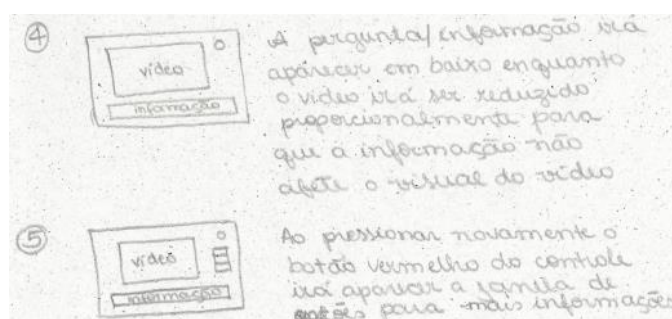 ④
vídeo
informação
A pergunta/informação irá
aparecer em baixo enquanto
o vídeo irá ser reduzido
proporcionalmente para
que a informação não
afete o visual do vídeo
⑤
vídeo
informação
Ao pressionar novamente o
botão vermelho do controle
irá aparecer a janela de
para mais informações